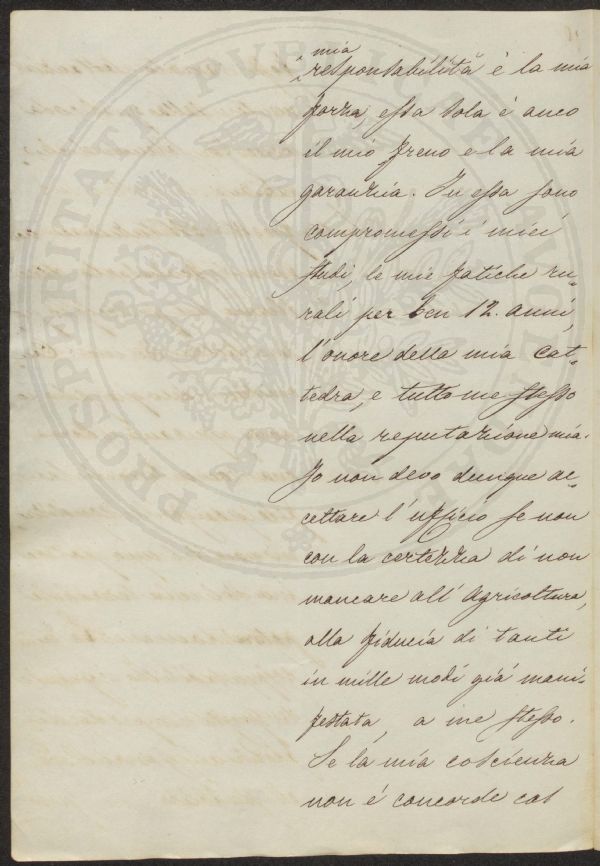 mia
responsabilità è la mia
forza, essa sola è anco
il mio freno e la mia
garanzia. In essa sono
compromessi i miei
studi, le mie fatiche ru-
rali per ben 12. anni,
l'onore della mia cat-
tedra, e tutto me stesso
nella reputazione mia.
Io non devo dunque ac-
cettare l'ufficio se non
con la certezza di non
mancare all'Agricoltura,
alla fiducia di tanti
in mille modi già mani-
festata, a me stesso.
Se la mia coscienza
non é concorde col
PROSPERITATI PVBLICAE AVGENDAE